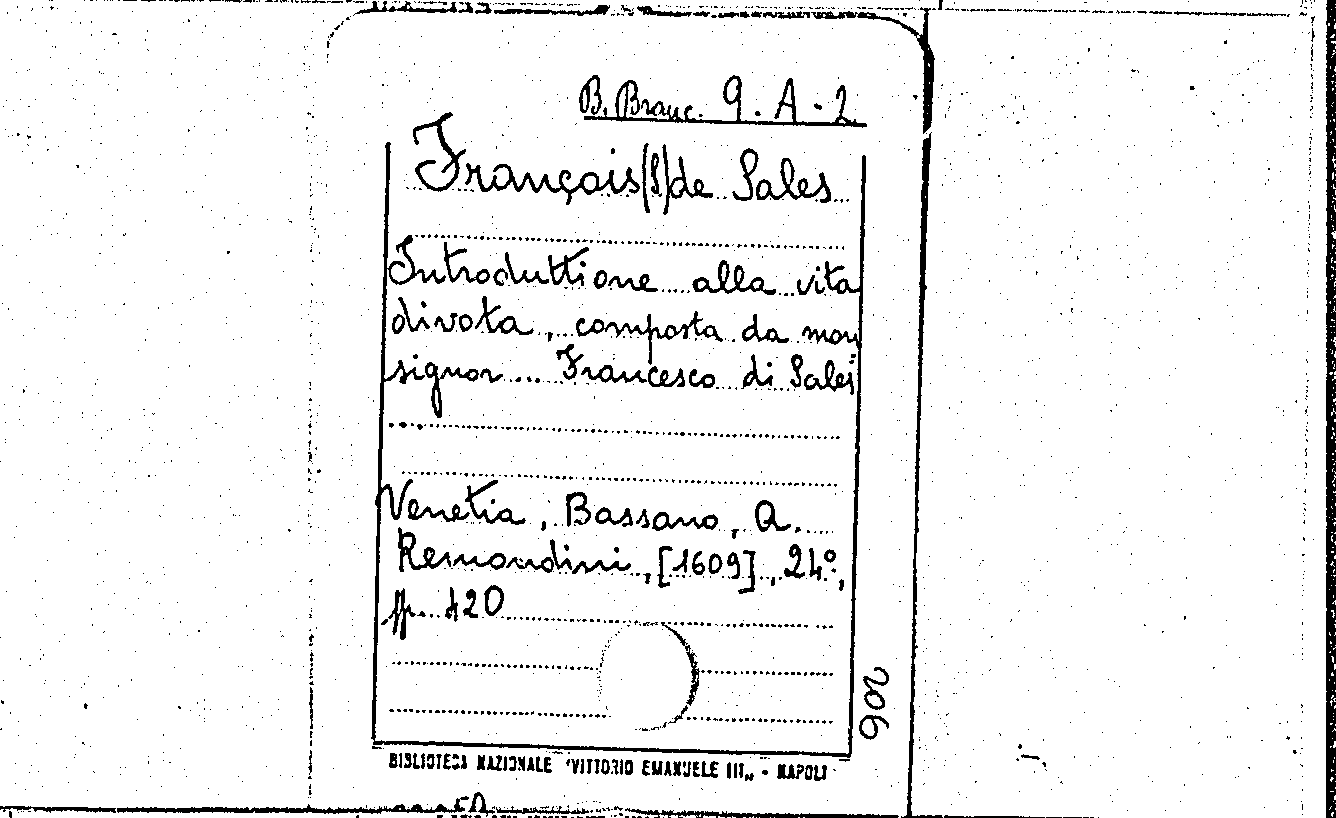 B. Branc. 9. A. 2.
François (S) de Sales
Introduttione alla vita
divota, composta da mon
signor... Francesco di Sales
...
Venetia, Bassano, A.
Remondini, [1609], 24°,
pp. 420
206
BIBLIOTECA NAZIONALE "VITTORIO EMANUELE III„ - NAPOLI